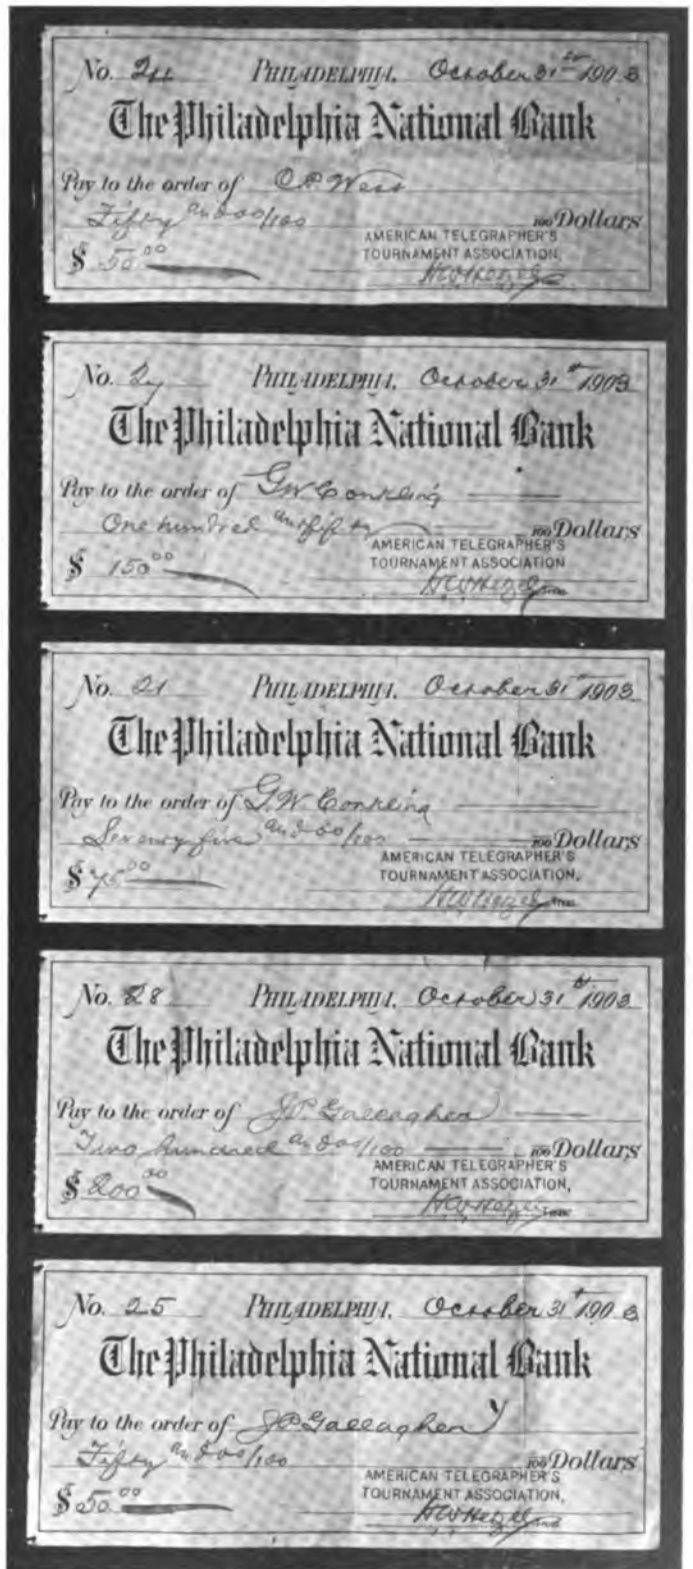 No. 24 PHILADELPHIA, October 31st 1903
The Philadelphia National Bank
Pay to the order of C.P. West
Fifty and 00/100 100 Dollars
AMERICAN TELEGRAPHER'S
$ 50 00 TOURNAMENT ASSOCIATION,
H W Hetzel
No. PHILADELPHIA, October 31st 1903
The Philadelphia National Bank
Pay to the order of G.W. Conkling
One hundred and fifty 100 Dollars
AMERICAN TELEGRAPHER'S
$ 150 00 TOURNAMENT ASSOCIATION
H W Hetzel Treas
No. 21 PHILADELPHIA, October 31st 1903
The Philadelphia National Bank
Pay to the order of G.W. Conkling
Seventy five and 00/100 100 Dollars
AMERICAN TELEGRAPHER'S
$ 75 00 TOURNAMENT ASSOCIATION,
H W Hetzel Treas
No. 28 PHILADELPHIA, October 31st 1903
The Philadelphia National Bank
Pay to the order of J.P. Gallagher
Two hundred and 00/100 100 Dollars
AMERICAN TELEGRAPHER'S
$ 200 00 TOURNAMENT ASSOCIATION,
H W Hetzel Treas
No. 25 PHILADELPHIA, October 31st 1903
The Philadelphia National Bank
Pay to the order of J P Gallagher
Fifty and 00/100 100 Dollars
AMERICAN TELEGRAPHER'S
$ 50 00 TOURNAMENT ASSOCIATION,
H W Hetzel Treas